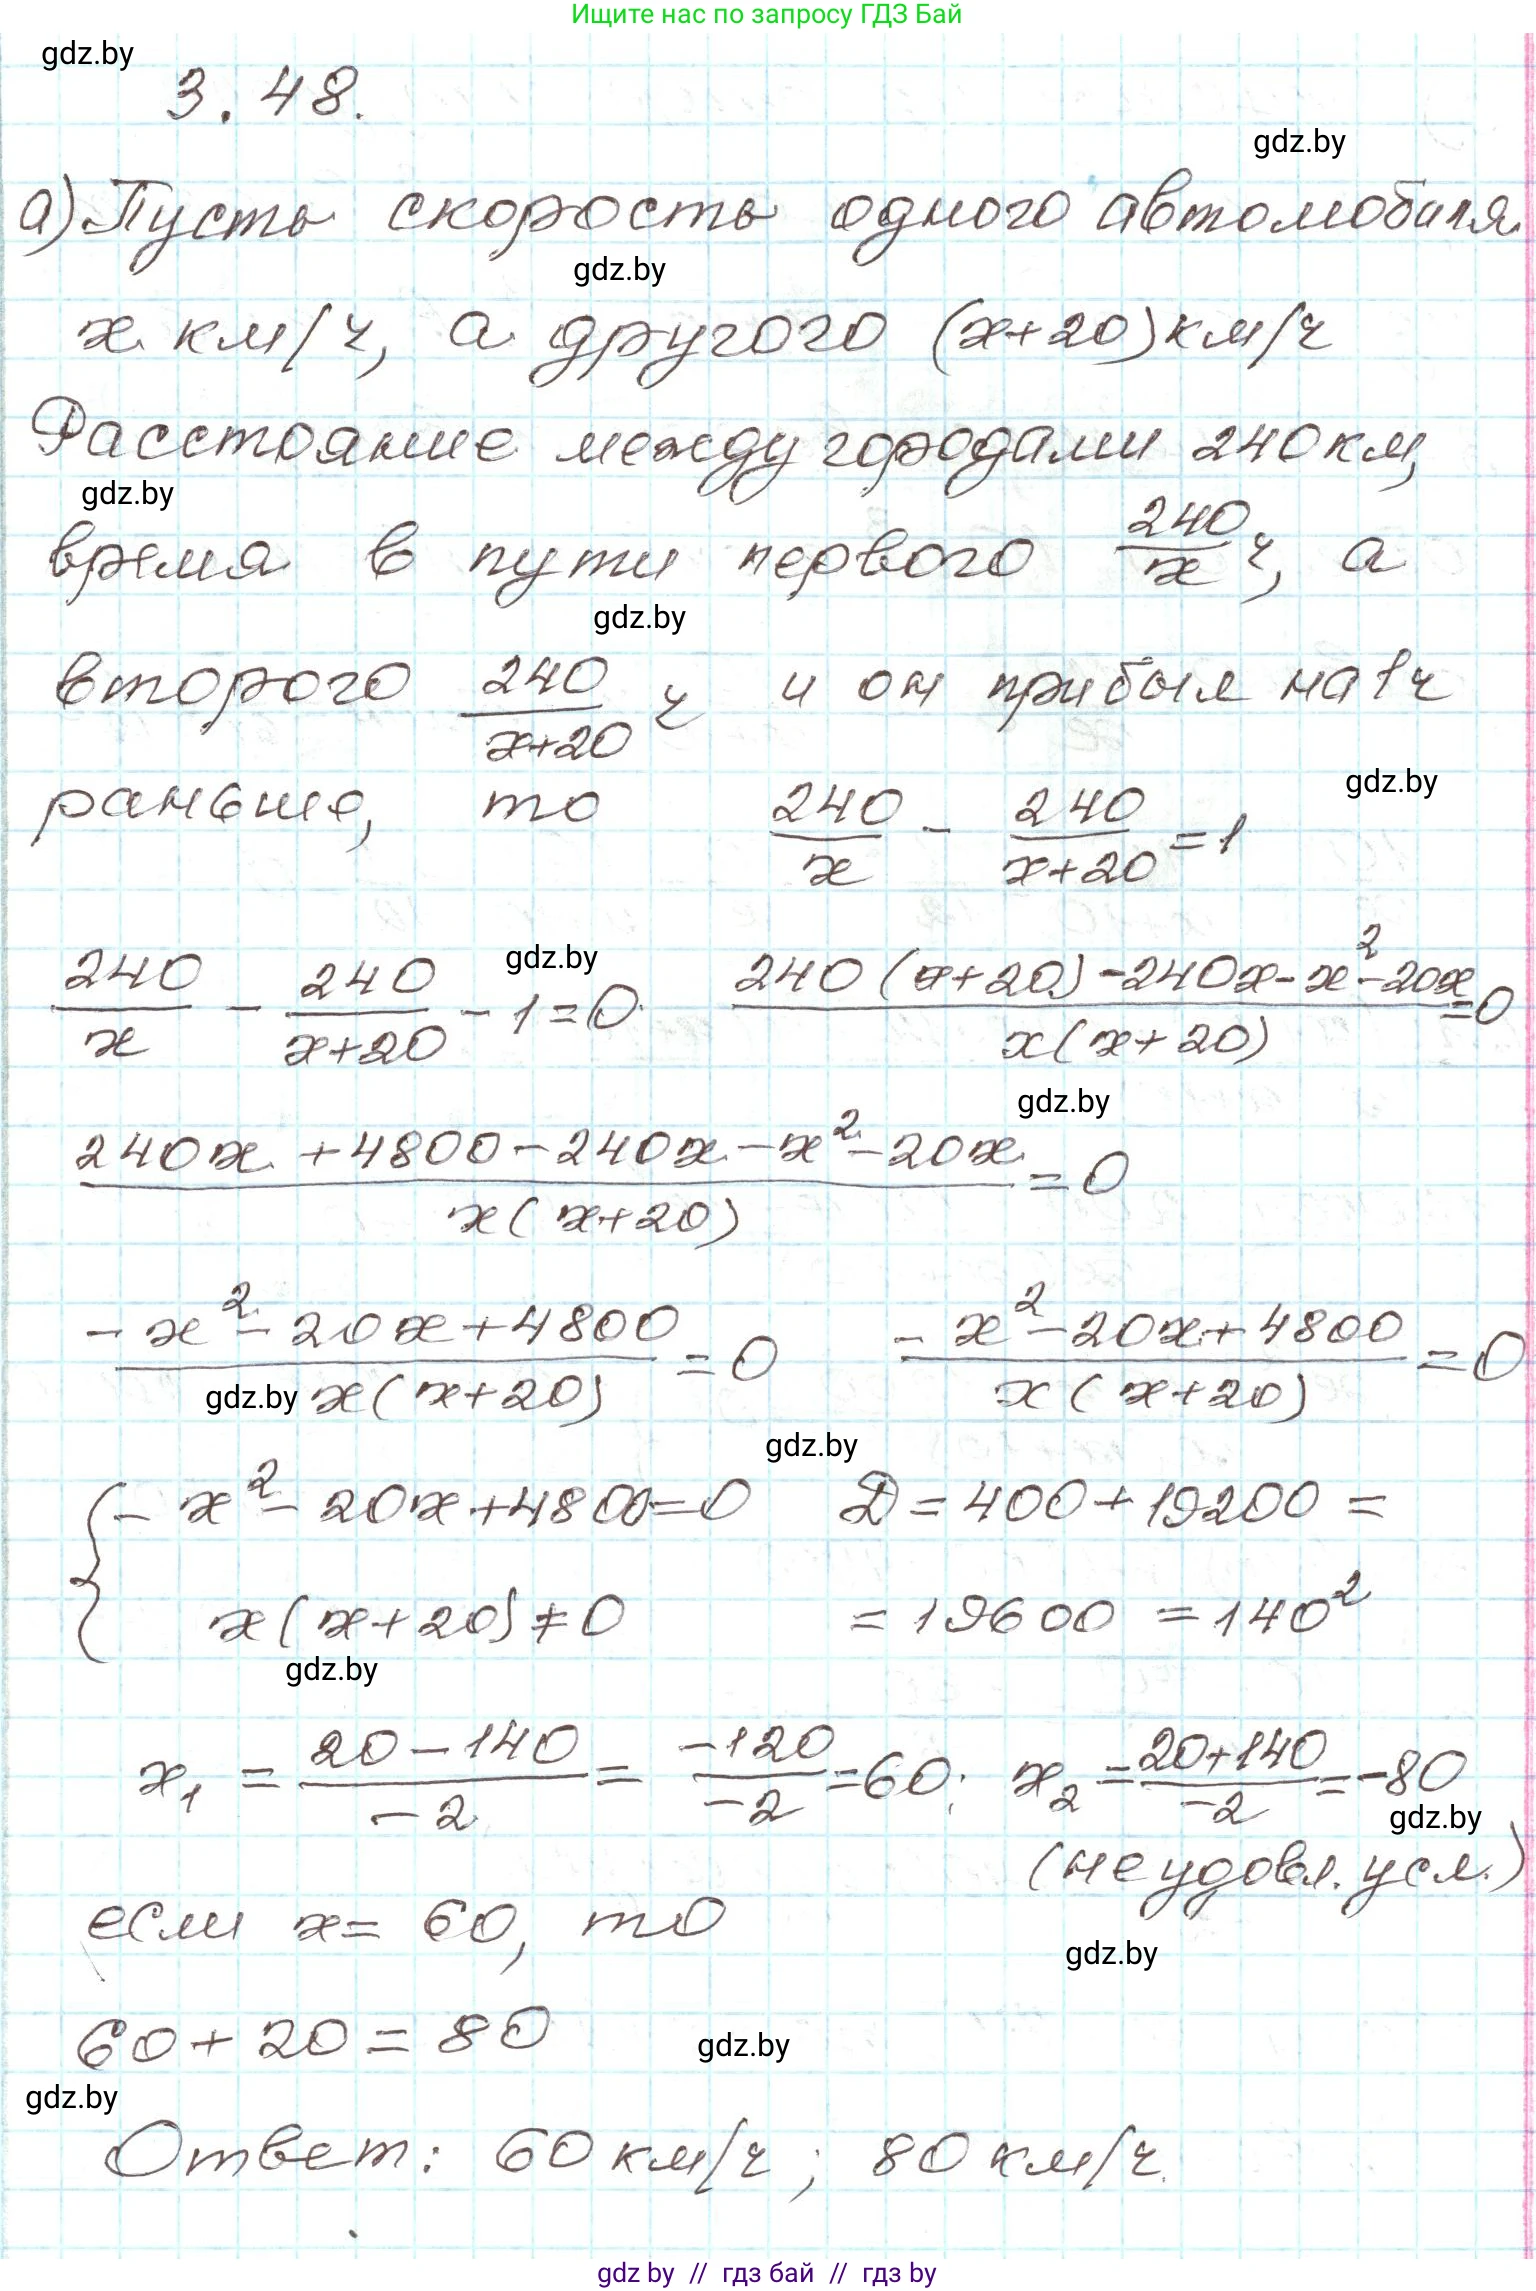 Ищите нас по запросу ГДЗ Бай
gdz.by
3.48.
gdz.by
а) Пусть скорость одного автомобиля
gdz.by
x км/ч, а другого (x+20) км/ч
Расстояние между городами 240 км,
gdz.by
время в пути первого 240/x ч, а
gdz.by
второго 240/(x+20) ч и он прибыл на 1 ч
gdz.by
раньше, то 240/x - 240/(x+20) = 1
gdz.by
240/x - 240/(x+20) - 1 = 0 (240(x+20) - 240x - x² - 20x)/(x(x+20)) = 0
gdz.by
(240x + 4800 - 240x - x² - 20x)/(x(x+20)) = 0
(-x² - 20x + 4800)/(x(x+20)) = 0 (-x² - 20x + 4800)/(x(x+20)) = 0
gdz.by
gdz.by
{ -x² - 20x + 4800 = 0 D = 400 + 19200 =
x(x+20) ≠ 0 = 19600 = 140²
gdz.by
x₁ = (20 - 140)/(-2) = (-120)/(-2) = 60; x₂ = (20+140)/(-2) = -80
gdz.by
(не удовл. усл.)
если x = 60, то
gdz.by
60 + 20 = 80
gdz.by
gdz.by
Ответ: 60 км/ч; 80 км/ч.
gdz by // гдз бай // гдз by